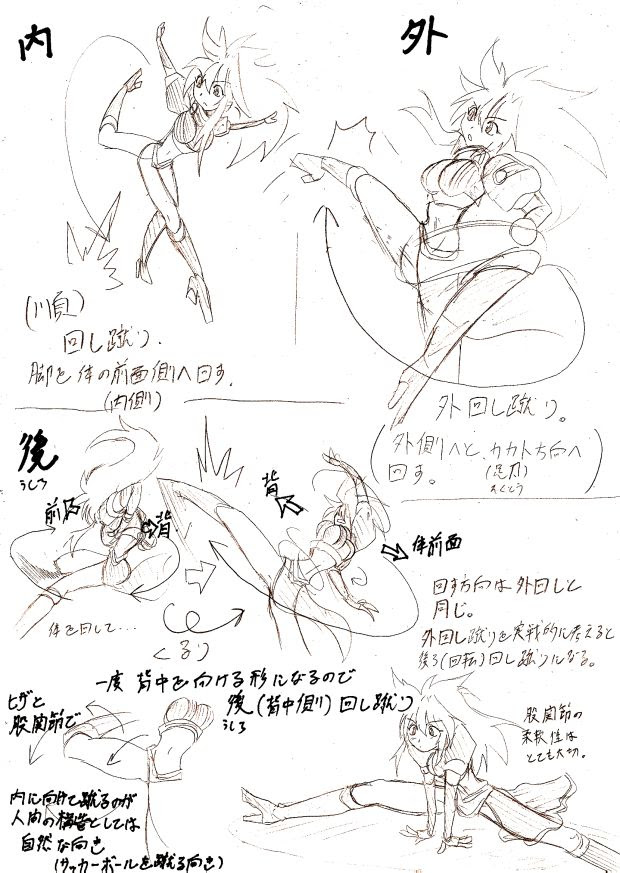 内
(順)
回し蹴り.
脚を体の前面側へ回す.
(内側)
外
外回し蹴り。
外側へと、カカト方向へ
回す。(足刀)
そくとう
後
うしろ
前
背
体を回して…
くるり
背
体前面
回す方向は外回しと
同じ。
外回し蹴りを実戦的に考えると
後ろ(回転)回し蹴りになる。
一度 背中を向ける形になるので
後(背中側)回し蹴り
うしろ
ヒザと
股関節で
内に向けて蹴るのが
人間の構造としては
自然な向き
(サッカーボールを蹴る向き)
股関節の
柔軟性は
とても大切。